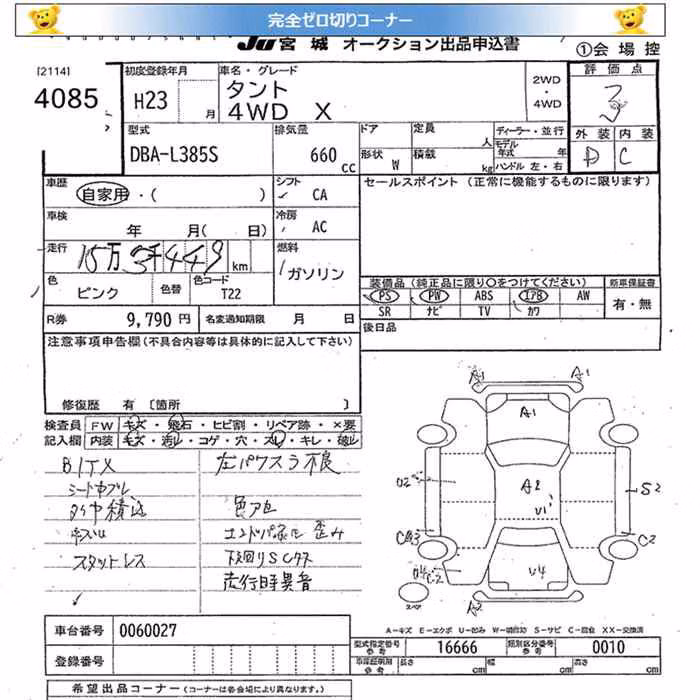 完全ゼロ切りコーナー
JU 宮城 オークション出品申込書 ①会場控
[2114]
4085
初度登録年月 H23 月
車名・グレード タント 4WD X
2WD・4WD
評価点 3
外装 D 内装 C
型式 DBA-L385S
排気量 660 CC
ドア 定員 人
形状 W 積載 kg
ディーラー・並行
モデル年式 年
ハンドル 左・右
車歴 自家用・( )
シフト CA
セールスポイント(正常に機能するものに限ります)
車検 年 月(日)
冷房 AC
走行 15万3千449 km
燃料 ガソリン
色 ピンク 色替 色コード T22
装備品(純正品に限り○をつけてください) 新車保証書
PS PW ABS エアB AW 有・無
SR ナビ TV カワ
R券 9,790円 名変通知期限 月 日
後日品
注意事項申告欄(不具合内容等は具体的に記入して下さい)
修復歴 有 [箇所 ]
検査員 FW キズ・飛石・ヒビ割・リペア跡・×要
記入欄 内装 キズ・汚レ・コゲ・穴・スレ・キレ・破レ
左パワスラ不良
スタットレス
下回りSCケス
走行時異音
A1 A1
A1
A2
U1
U4
S2
C2
A2
スペア
A-キズ E-エクボ U-凹み W-補修跡 S-サビ C-腐食 XX-交換済
車台番号 0060027
型式指定番号 参考 16666 類別区分番号 参考 0010
登録番号
長さ cm 幅 cm 高さ cm
希望出品コーナー(コーナーは各会場により異なります。)